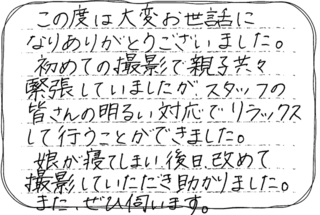 この度は大変お世話に
なりありがとうございました。
初めての撮影で親子共々
緊張していましたがスタッフの
皆さんの明るい対応でリラックス
して行うことができました。
娘が寝てしまい後日、改めて
撮影していただき助かりました。
また、ぜひ伺います。